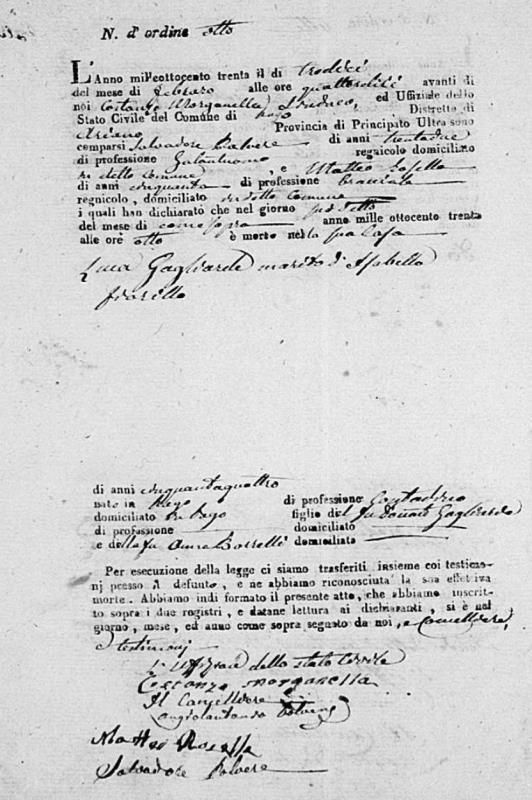 N. d' ordine otto
L'Anno mill'ottocento trenta il dì tredici
del mese di Febraro alle ore quattordici avanti di
noi Costanzo Morganella Sindaco, ed Uffiziale dello
Stato Civile del Comune di Pago Distretto di
Ariano Provincia di Principato Ultra sono
comparsi Salvadore Polvere di anni trentadue
di professione Galantuomo regnicolo domiciliato
in detto Comune, e Matteo Rosella
di anni cinquanta di professione Bracciale
regnicolo, domiciliato in detto Comune
i quali han dichiarato che nel giorno sud.detto
del mese di come sopra anno mille ottocento trenta
alle ore otto è morto nella sua Casa
Luca Gagliarde marito d'Isabella
Fiorillo
di anni cinquantaquattro
nato in Pago di professione Contadino
domiciliato in Pago figlio del fu Donato Gagliarde
di professione domiciliato
e della fu Borrelli domiciliato
Per esecuzione della legge ci siamo trasferiti insieme coi testimo-
nj presso il defunto, e ne abbiamo riconosciuta la sua effettiva
morte. Abbiamo indi formato il presente atto, che abbiamo inscrit-
to sopra i due registri, e datane lettura ai dichiaranti, si è nel
giorno, mese, ed anno come sopra segnato da noi, e Cancelliere,
e testimonj
L'Uffiziale dello stato Civile
Costanzo Morganella
Il Cancelliere
Matteo Rosella
Salvadore Polvere